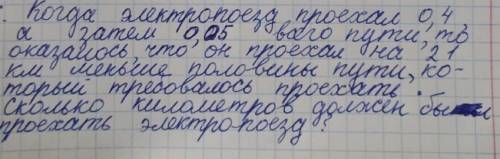 Когда электропоезд проехал 0,4,
а затем 0,05 всего пути, то
оказалось, что, он проехал на 21
км меньше половины пути, ко-
торый требовалось проехать.
Сколько километров должен был
проехать электропоезд?